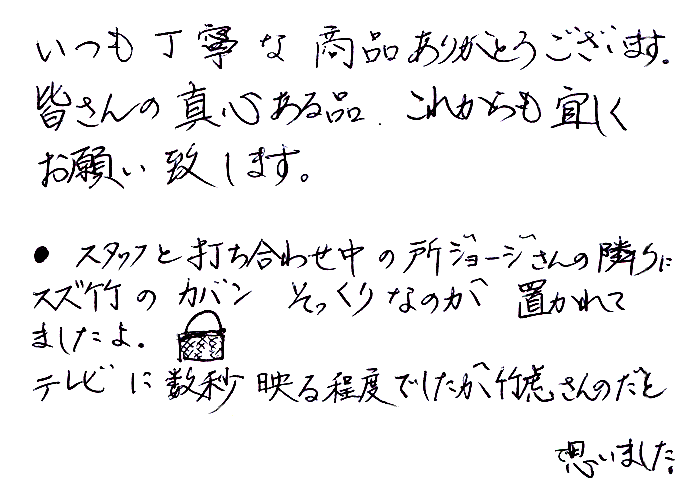 いつも丁寧な商品ありがとうございます。
皆さんの真心ある品、これからも宜しく
お願い致します。
● スタッフと打ち合わせ中の所ジョージさんの隣りに
スズ竹のカバン そっくりなのが 置かれて
ましたよ。
テレビに数秒映る程度でしたが竹虎さんのだと
思いました。